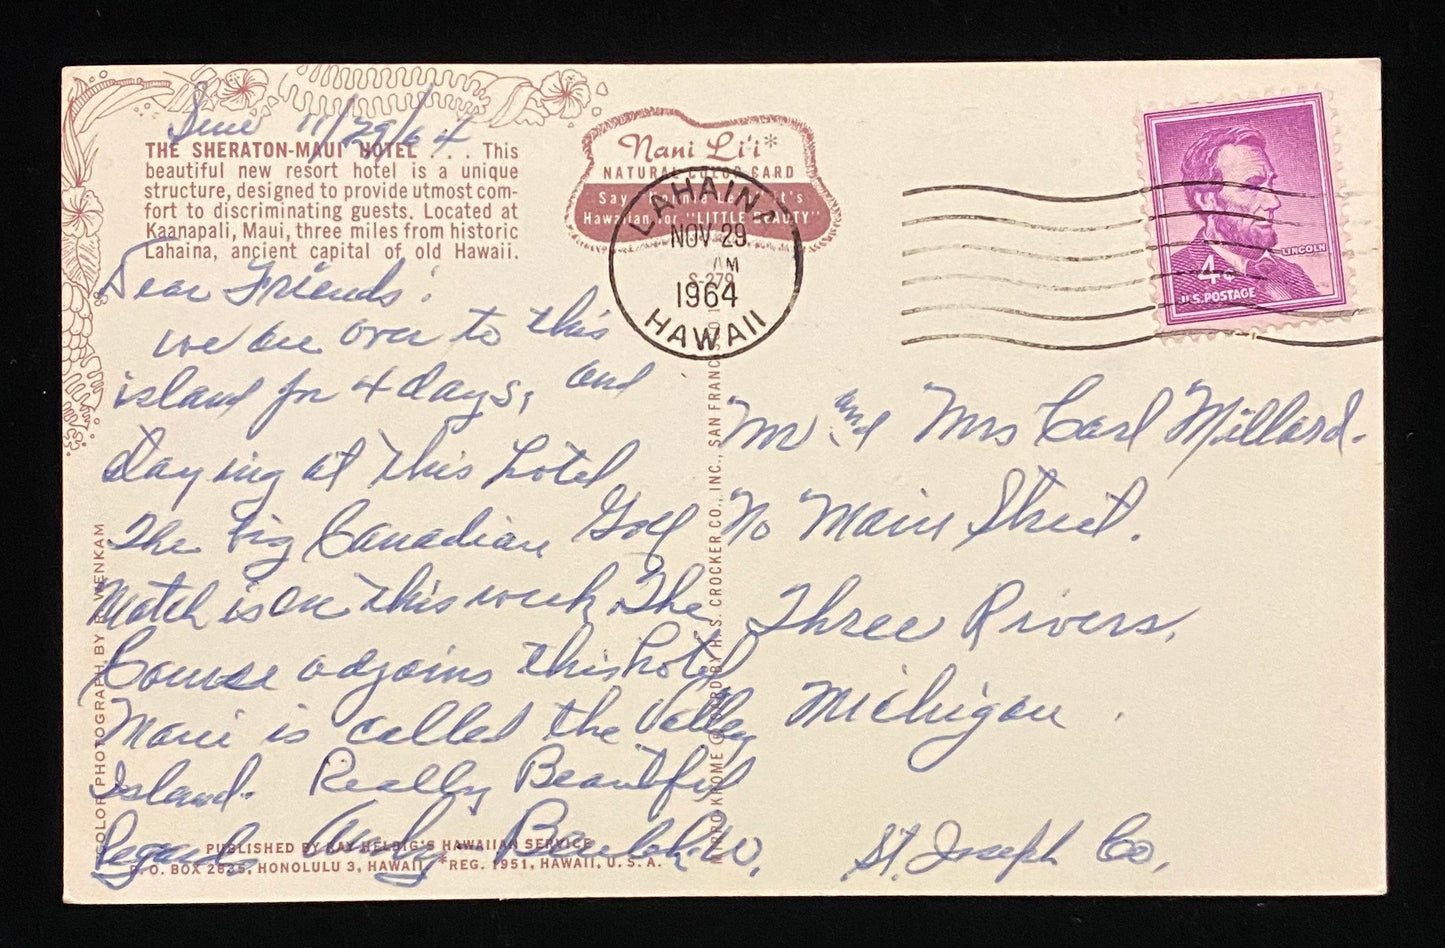 11/29/64
THE SHERATON-MAUI HOTEL . . . This
beautiful new resort hotel is a unique
structure, designed to provide utmost com-
fort to discriminating guests. Located at
Kaanapali, Maui, three miles from historic
Lahaina, ancient capital of old Hawaii.
Nani Li'i*
NATURAL COLOR CARD
Say
Hawaiian for "LITTLE BEAUTY"
LAHAINA
NOV 29
AM
1964
HAWAII
S-279
LINCOLN
4¢
U.S. POSTAGE
Dear Friends:
we are over to this
island for 4 days, and
staying at this hotel
The big Canadian Golf
Match is on this week. The
Course adjoins this hotel
Maui is called the Valley
Island. Really Beautiful
Regards, Beulah W.
Mr and Mrs Carl Millard.
No Main Street.
Three Rivers,
Michigan.
St. Joseph Co,
COLOR PHOTOGRAPH BY R. WENKAM
MIRRO-KROME ® CARD BY H. S. CROCKER CO., INC., SAN FRANC
PUBLISHED BY RAY HELBIG'S HAWAIIAN SERVICE
P.O. BOX 2835, HONOLULU 3, HAWAII *REG. 1951, HAWAII, U.S.A.